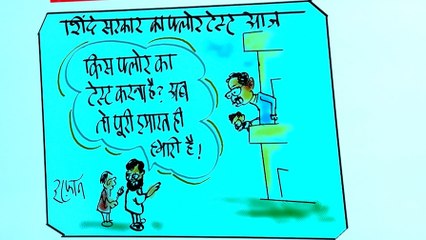 शिंदे सरकार का फ्लोर टेस्ट आज
किस फ्लोर का
टेस्ट करना है? अब
तो पूरी इमारत ही
हमारी है!
इरफ़ान